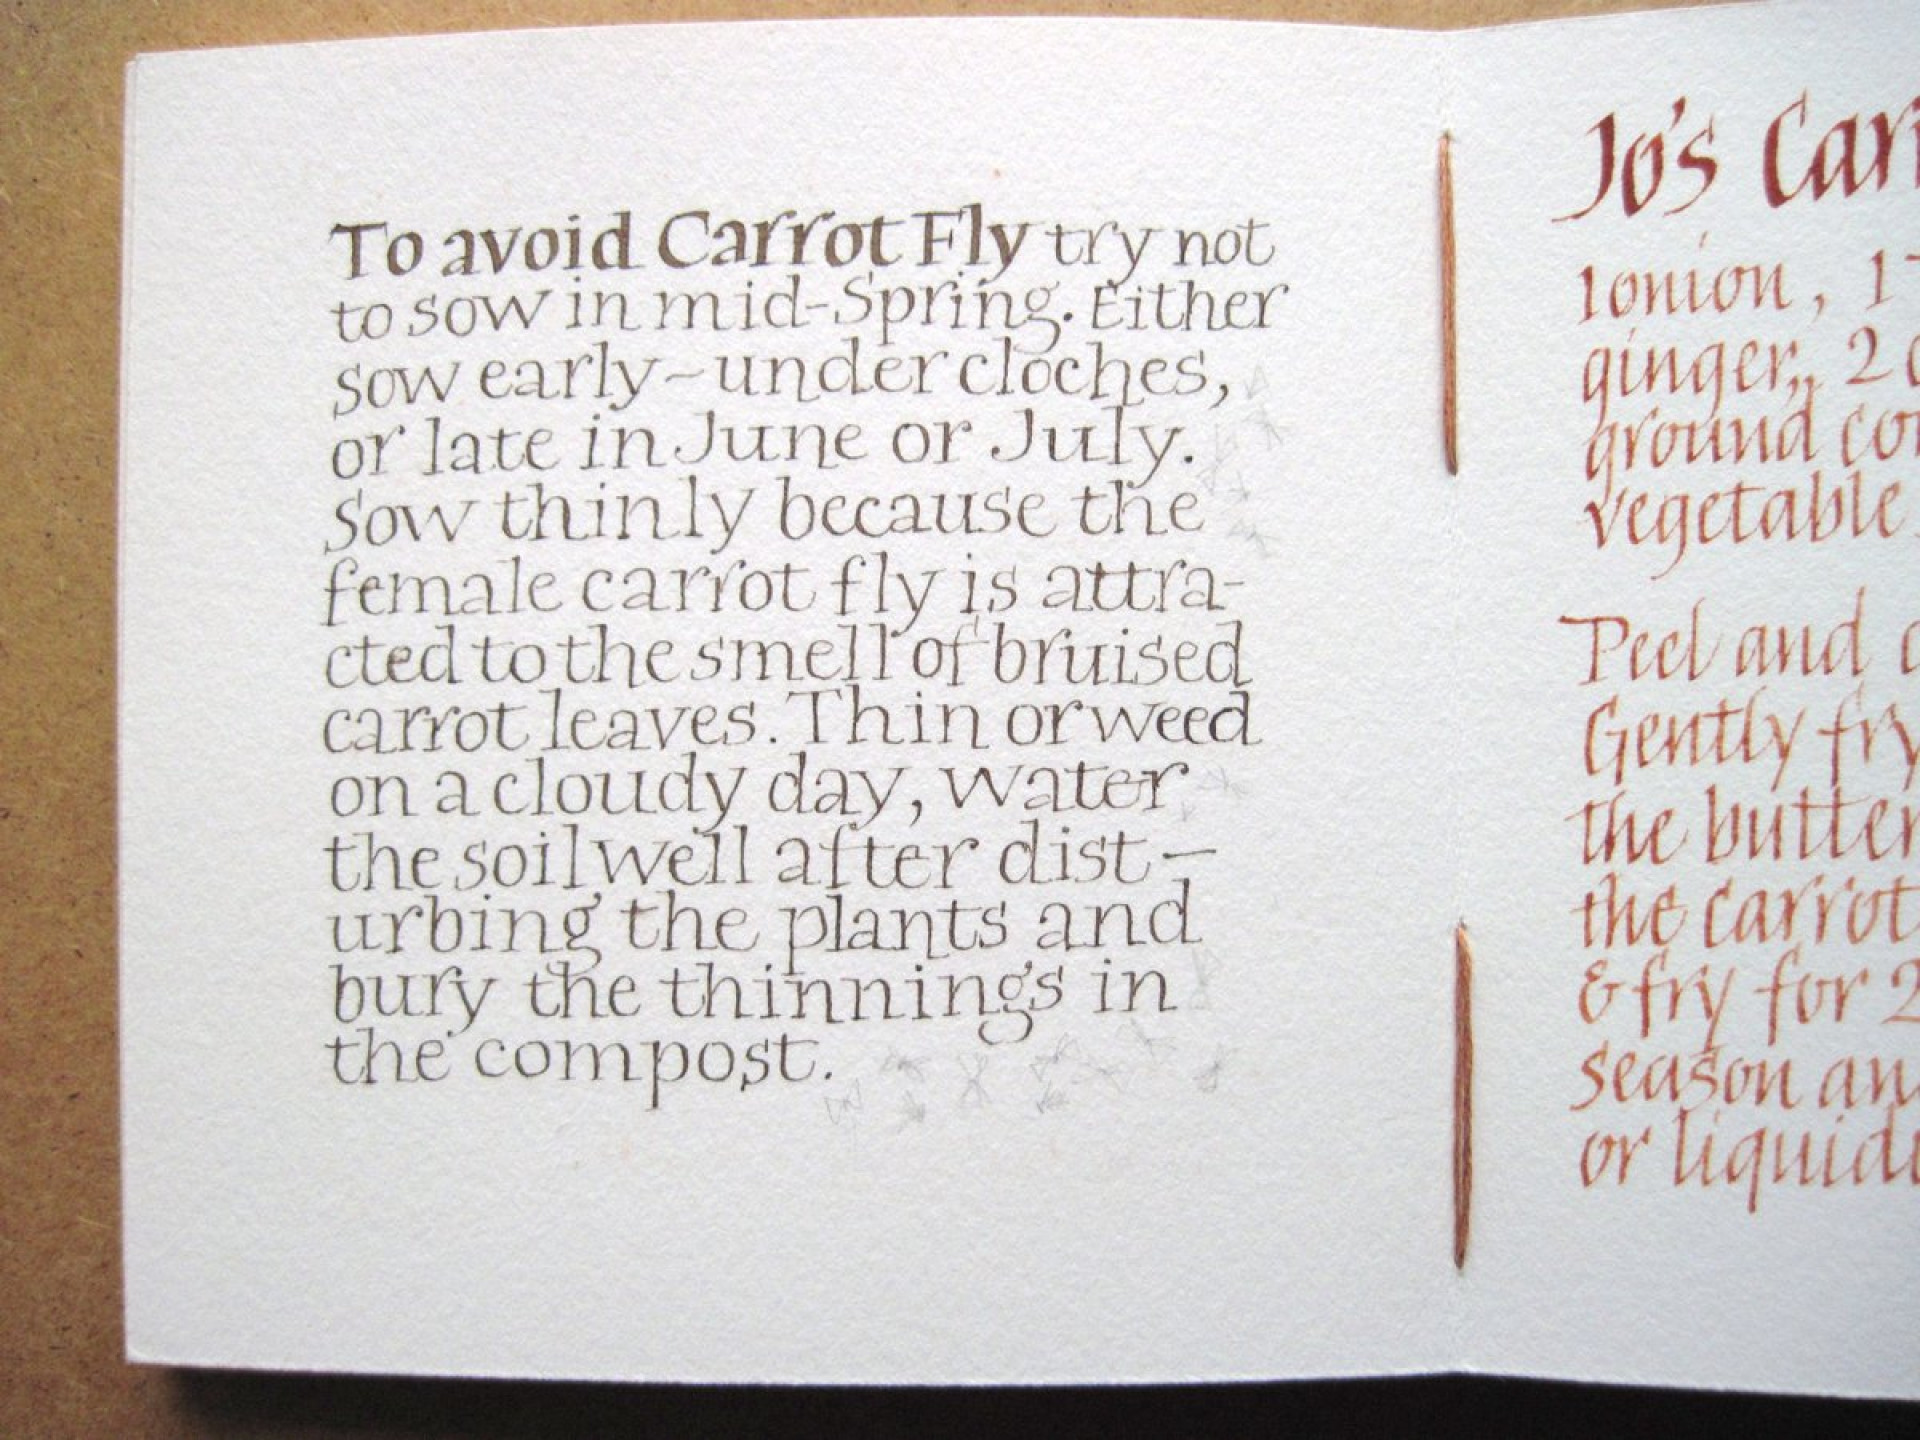 To avoid Carrot Fly try not
to sow in mid-Spring. Either
sow early-under cloches,
or late in June or July.
Sow thinly because the
female carrot fly is attra-
cted to the smell of bruised
carrot leaves. Thin or weed
on a cloudy day, water
the soil well after dist-
urbing the plants and
bury the thinnings in
the compost.
Jo's
1 onion, 1
ginger,, 2
ground
vegetable
Peel and
Gently fry
the butter
the carrot
& fry for 2
season
or